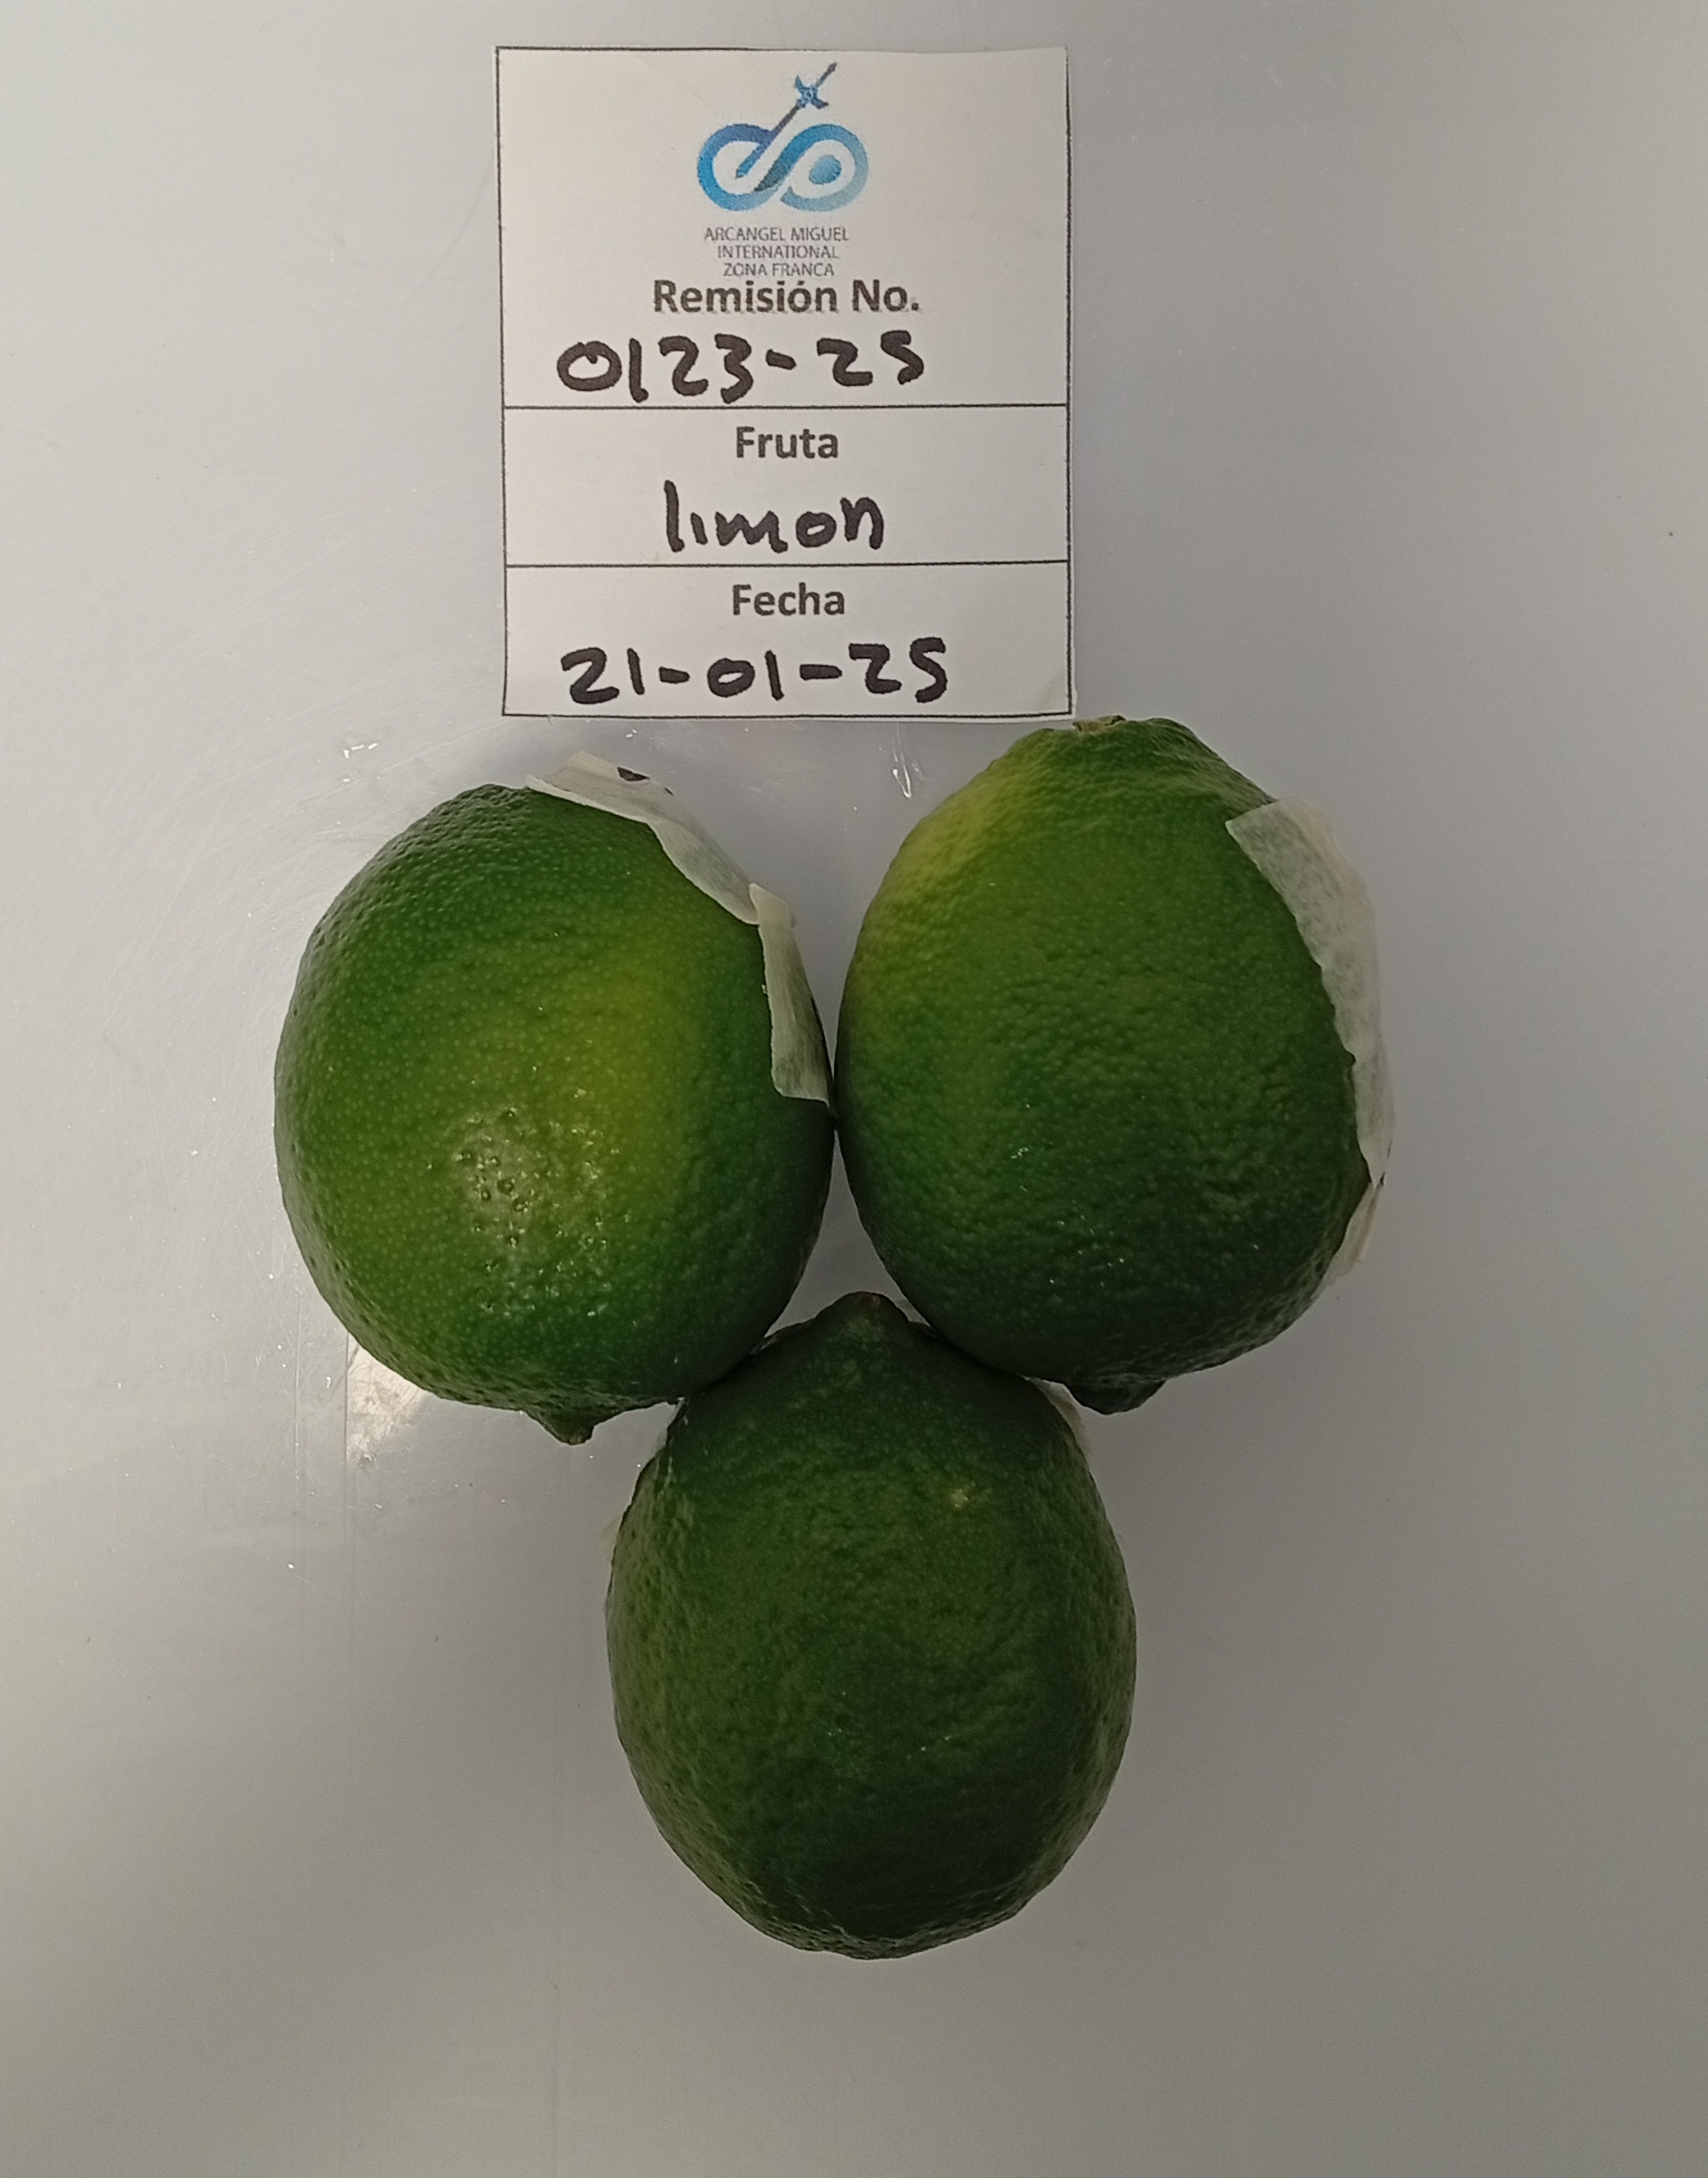 ARCANGEL MIGUEL
INTERNATIONAL
ZONA FRANCA
Remisión No.
0123-25
Fruta
limon
Fecha
21-01-25